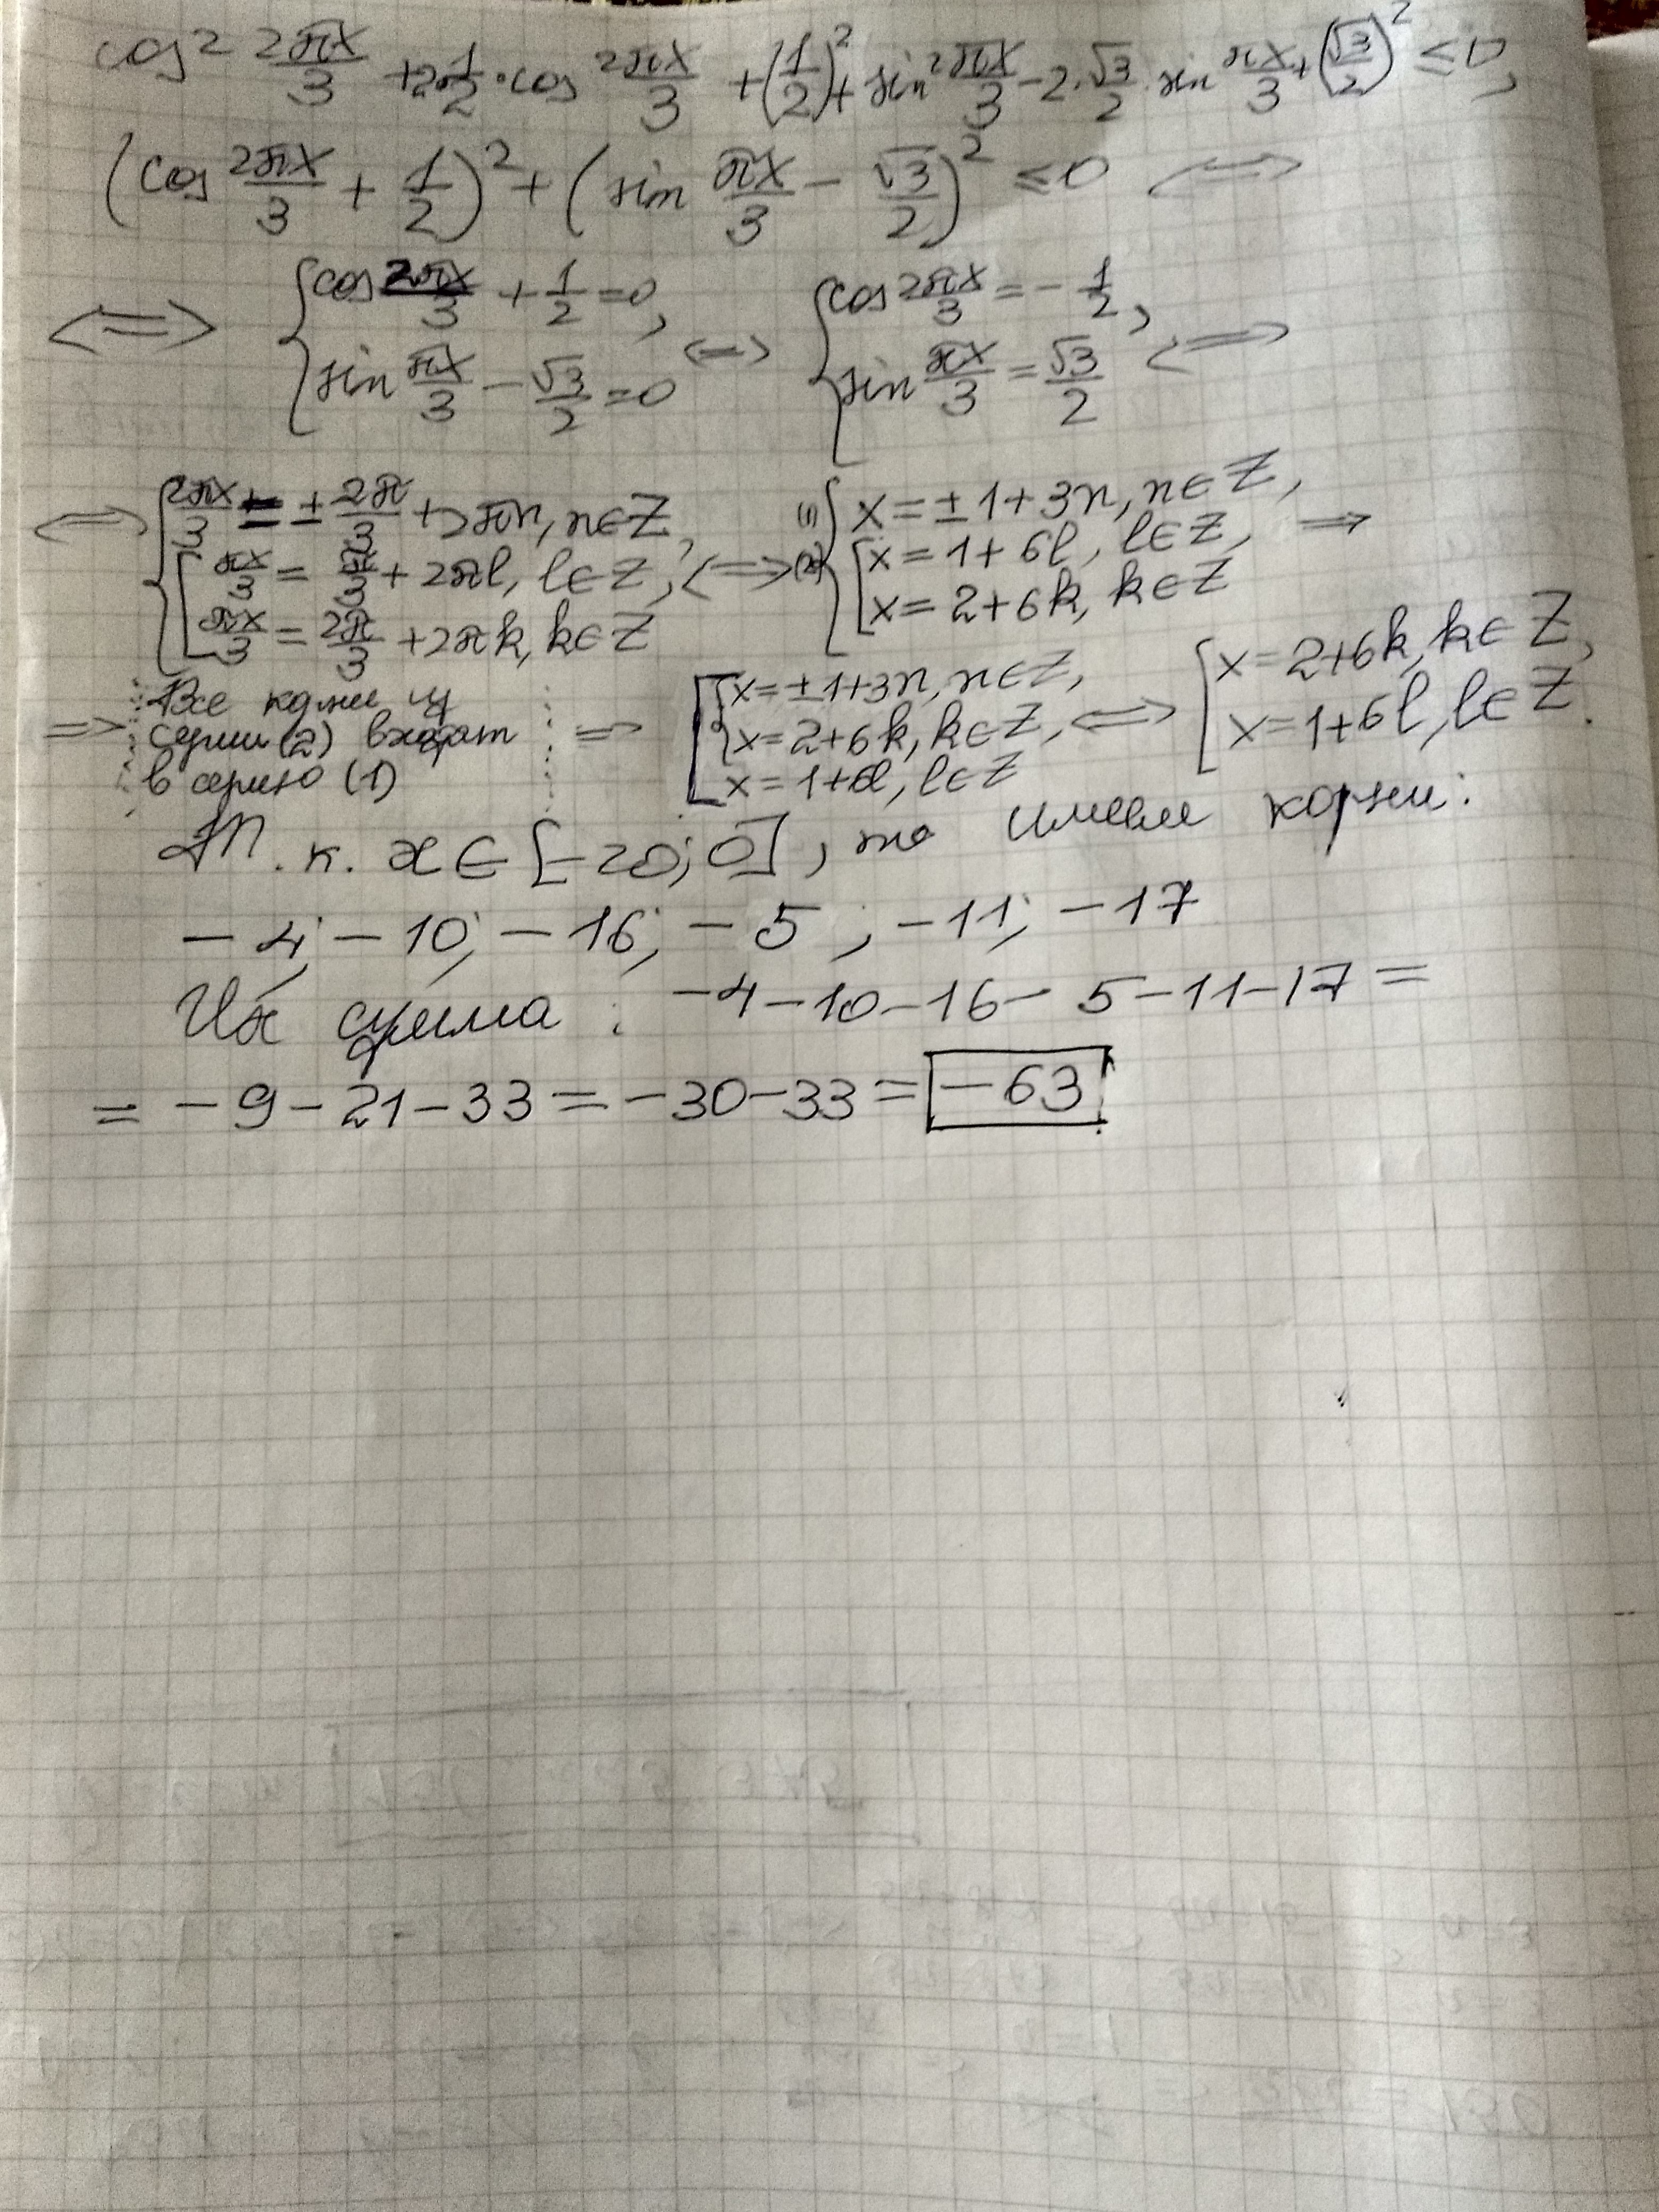 cos² 2πx/3 + 2·1/2·cos 2πx/3 + (1/2)² + sin² πx/3 − 2·√3/2·sin πx/3 + (√3/2)² ≤ 0,
(cos 2πx/3 + 1/2)² + (sin πx/3 − √3/2)² ≤ 0 ⟺
⟺ { cos 2πx/3 + 1/2 = 0, sin πx/3 − √3/2 = 0 ⟺ { cos 2πx/3 = −1/2, sin πx/3 = √3/2 ⟺
⟺ { 2πx/3 = ± 2π/3 + 2πn, n∈Z, [ πx/3 = π/3 + 2πl, l∈Z, πx/3 = 2π/3 + 2πk, k∈Z ⟺ (1) (2) { x = ±1 + 3n, n∈Z, [ x = 1 + 6l, l∈Z, x = 2 + 6k, k∈Z ⟹
⟹ Все корни из серии (2) входят в серию (1) ⟹ [ { x = ±1+3n, n∈Z, x = 2+6k, k∈Z, x = 1+6l, l∈Z ⟺ [ x = 2+6k, k∈Z, x = 1+6l, l∈Z.
Т.к. x ∈ [−20; 0], то имеем корни:
−4; −10; −16; −5; −11; −17
Их сумма: −4−10−16−5−11−17 =
= −9−21−33 = −30−33 = −63